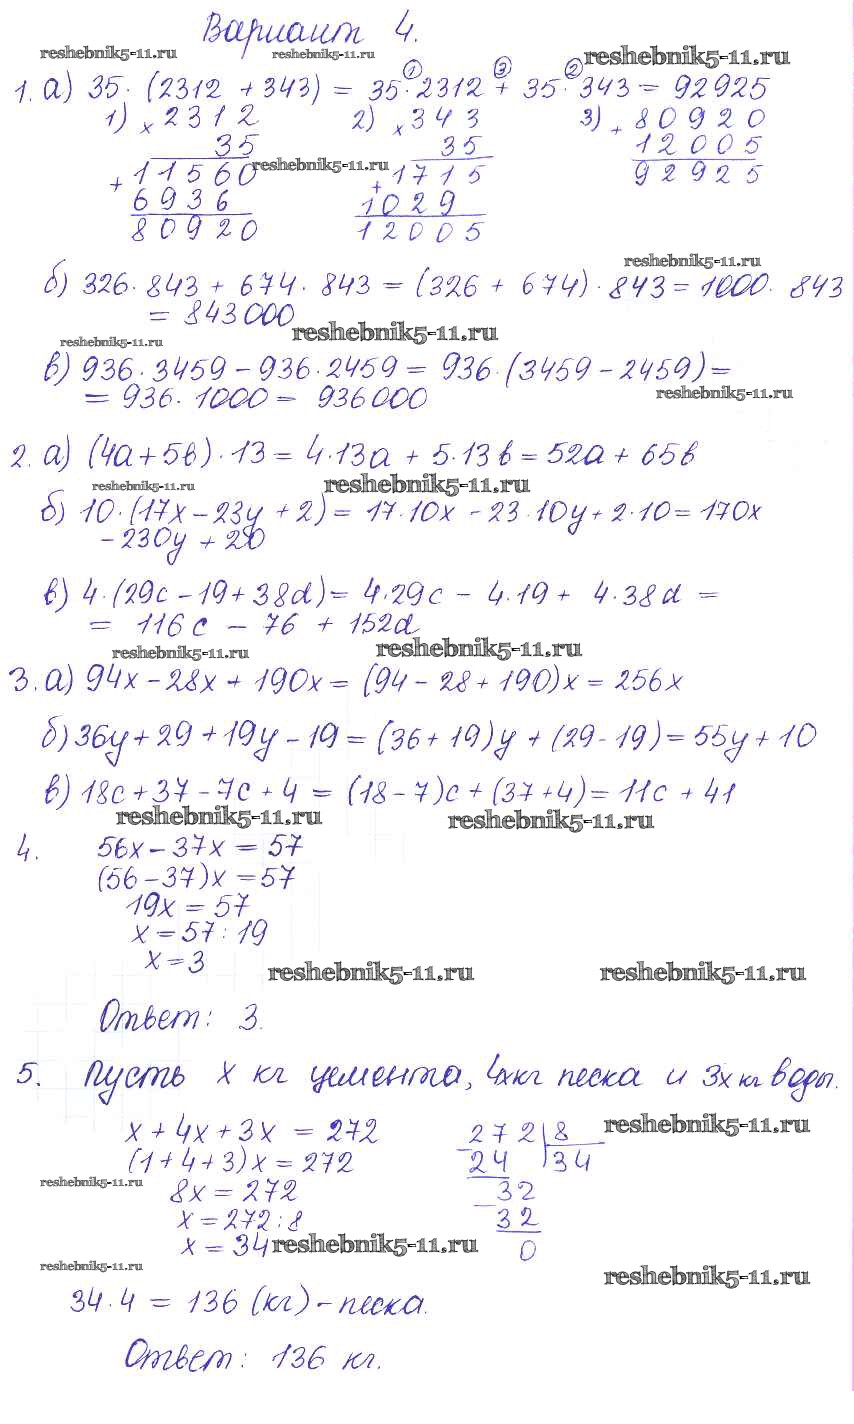 Вариант 4.
reshebnik5-11.ru reshebnik5-11.ru reshebnik5-11.ru
1. а) 35·(2312 + 343) = 35·①2312 +③ 35·②343 = 92925
1) × 2312 2) × 343 3) + 80920
35 35 12005
+ 11560 reshebnik5-11.ru + 1715 92925
6936 1029
80920 12005
reshebnik5-11.ru
б) 326·843 + 674·843 = (326 + 674)·843 = 1000·843
= 843000
reshebnik5-11.ru reshebnik5-11.ru
в) 936·3459 - 936·2459 = 936·(3459 - 2459) =
= 936·1000 = 936000 reshebnik5-11.ru
2. а) (4a + 5b)·13 = 4·13a + 5·13b = 52a + 65b
reshebnik5-11.ru reshebnik5-11.ru
б) 10·(17x - 23y + 2) = 17·10x - 23·10y + 2·10 = 170x
- 230y + 20
в) 4·(29c - 19 + 38d) = 4·29c - 4·19 + 4·38d =
= 116c - 76 + 152d
reshebnik5-11.ru reshebnik5-11.ru
3. а) 94x - 28x + 190x = (94 - 28 + 190)x = 256x
б) 36y + 29 + 19y - 19 = (36 + 19)y + (29 - 19) = 55y + 10
в) 18c + 37 - 7c + 4 = (18 - 7)c + (37 + 4) = 11c + 41
reshebnik5-11.ru reshebnik5-11.ru
4. 56x - 37x = 57
(56 - 37)x = 57
19x = 57
x = 57 : 19
x = 3
reshebnik5-11.ru reshebnik5-11.ru
Ответ: 3.
5. Пусть x кг цемента, 4x кг песка и 3x кг воды.
x + 4x + 3x = 272 272 | 8 reshebnik5-11.ru
(1 + 4 + 3)x = 272 - 24 | 34
reshebnik5-11.ru 8x = 272 32
x = 272 : 8 - 32
x = 34 reshebnik5-11.ru 0
reshebnik5-11.ru reshebnik5-11.ru
34·4 = 136 (кг) - песка.
Ответ: 136 кг.